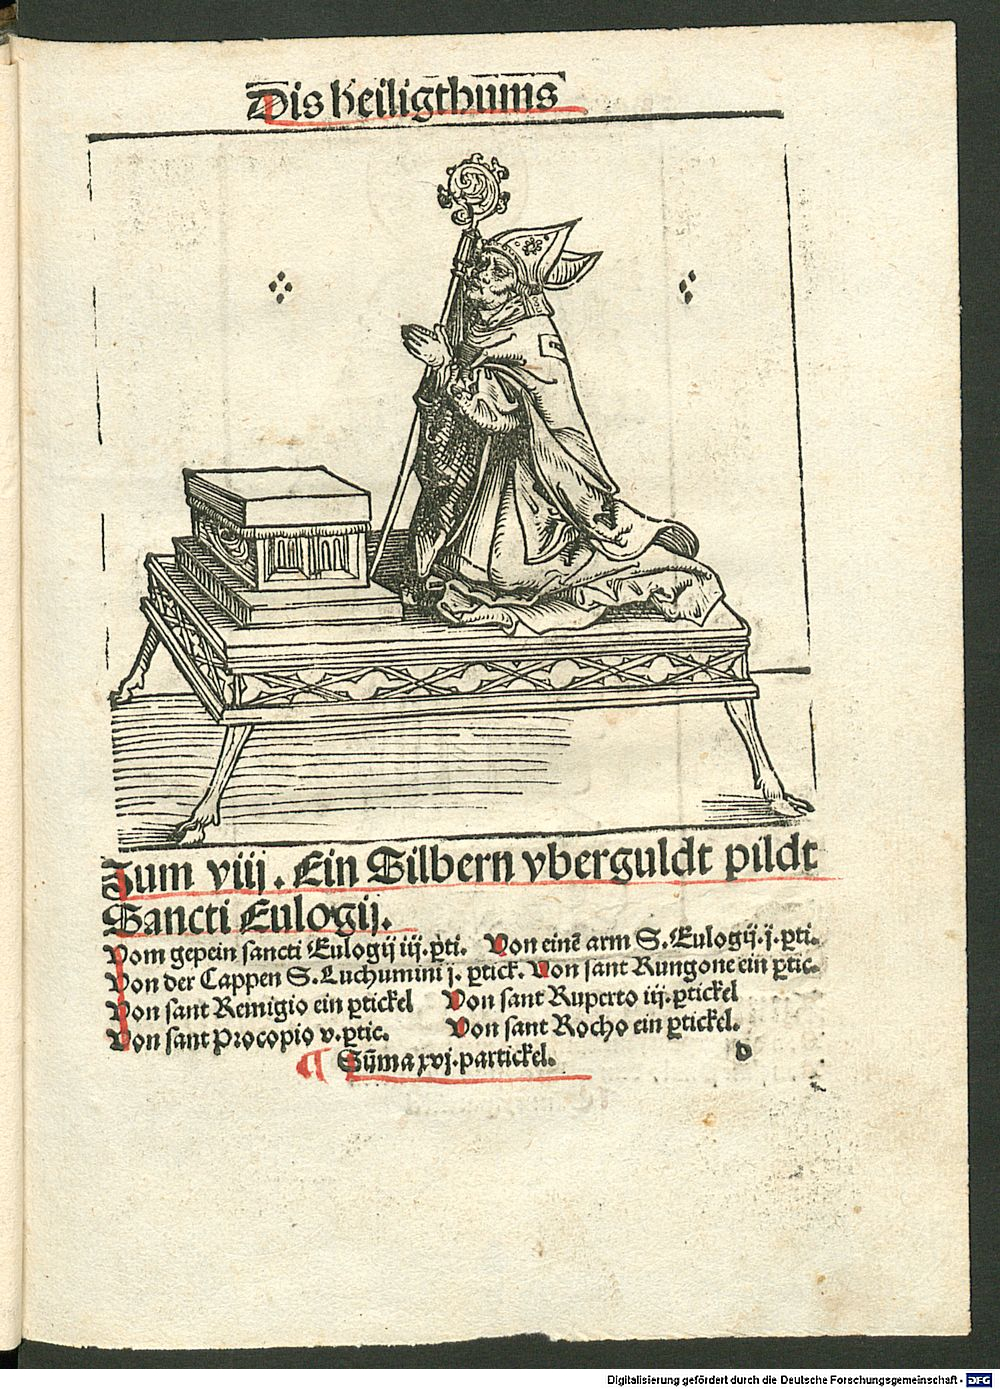 Dis heiligthums
Zum viij. Ein Silbern vberguldt pildt
Sancti Eulogij.
Vom gepein sancti Eulogij iij. ꝑti. Von einē arm S. Eulogij. j. ꝑti.
Von der Cappen S. Luchumini j. ꝑtick. Von sant Rungone ein ꝑtic.
Von sant Remigio ein ꝑtickel Von sant Ruperto iij. ꝑtickel
Von sant Procopio v. ꝑtic. Von sant Rocho ein ꝑtickel.
¶ Sūma xvj. partickel. d
Digitalisierung gefördert durch die Deutsche Forschungsgemeinschaft - DFG